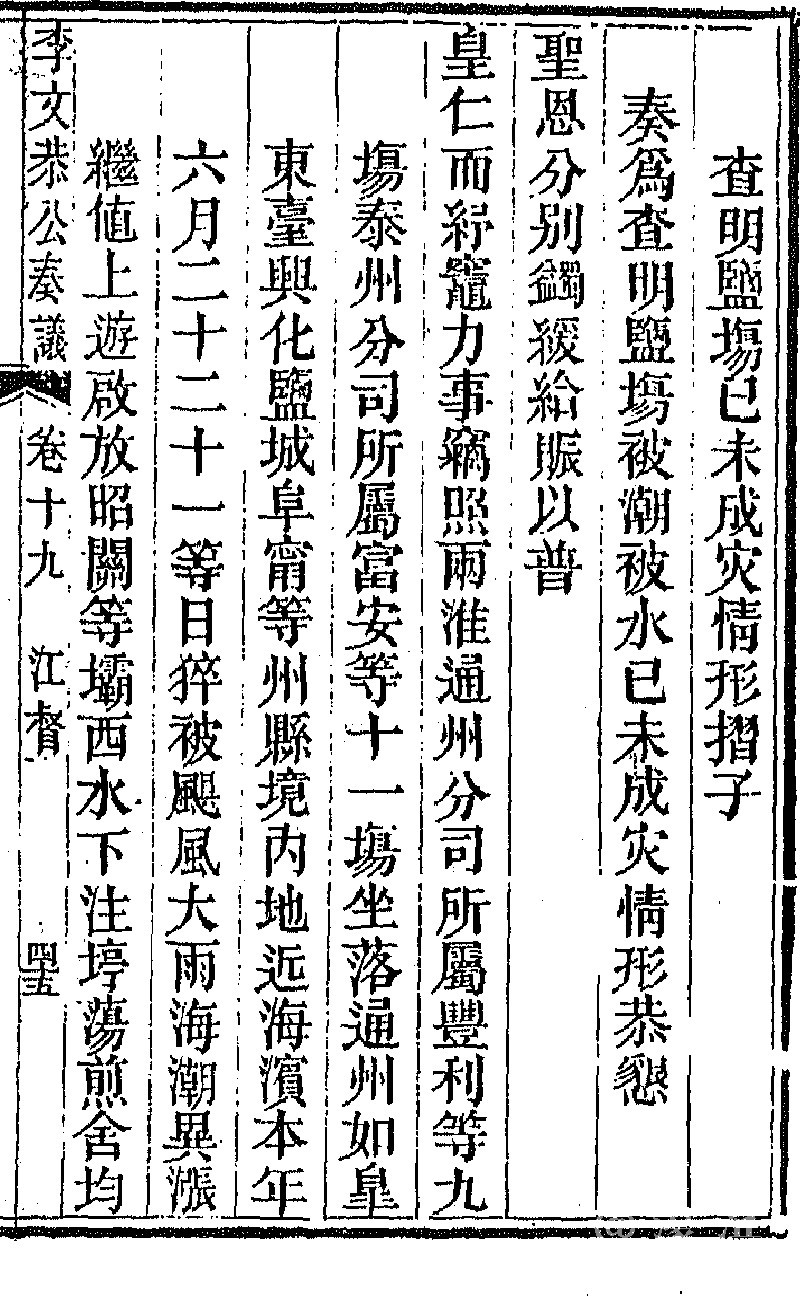 查明鹽塲已未成灾情形摺子
奏爲查明鹽塲被潮被水已未成灾情形恭懇
聖恩分別蠲緩給賑以普
皇仁而紓竈力事竊照兩淮通州分司所屬豐利等九
塲泰州分司所屬富安等十一塲坐落通州如皇
東臺興化鹽城阜甯等州縣境内地近海濱本年
六月二十二十一等日猝被颶風大雨海潮異漲
繼值上遊啟放昭關等壩西水下注埻蕩煎舍均
李文恭公奏議 卷十九 江督 四五